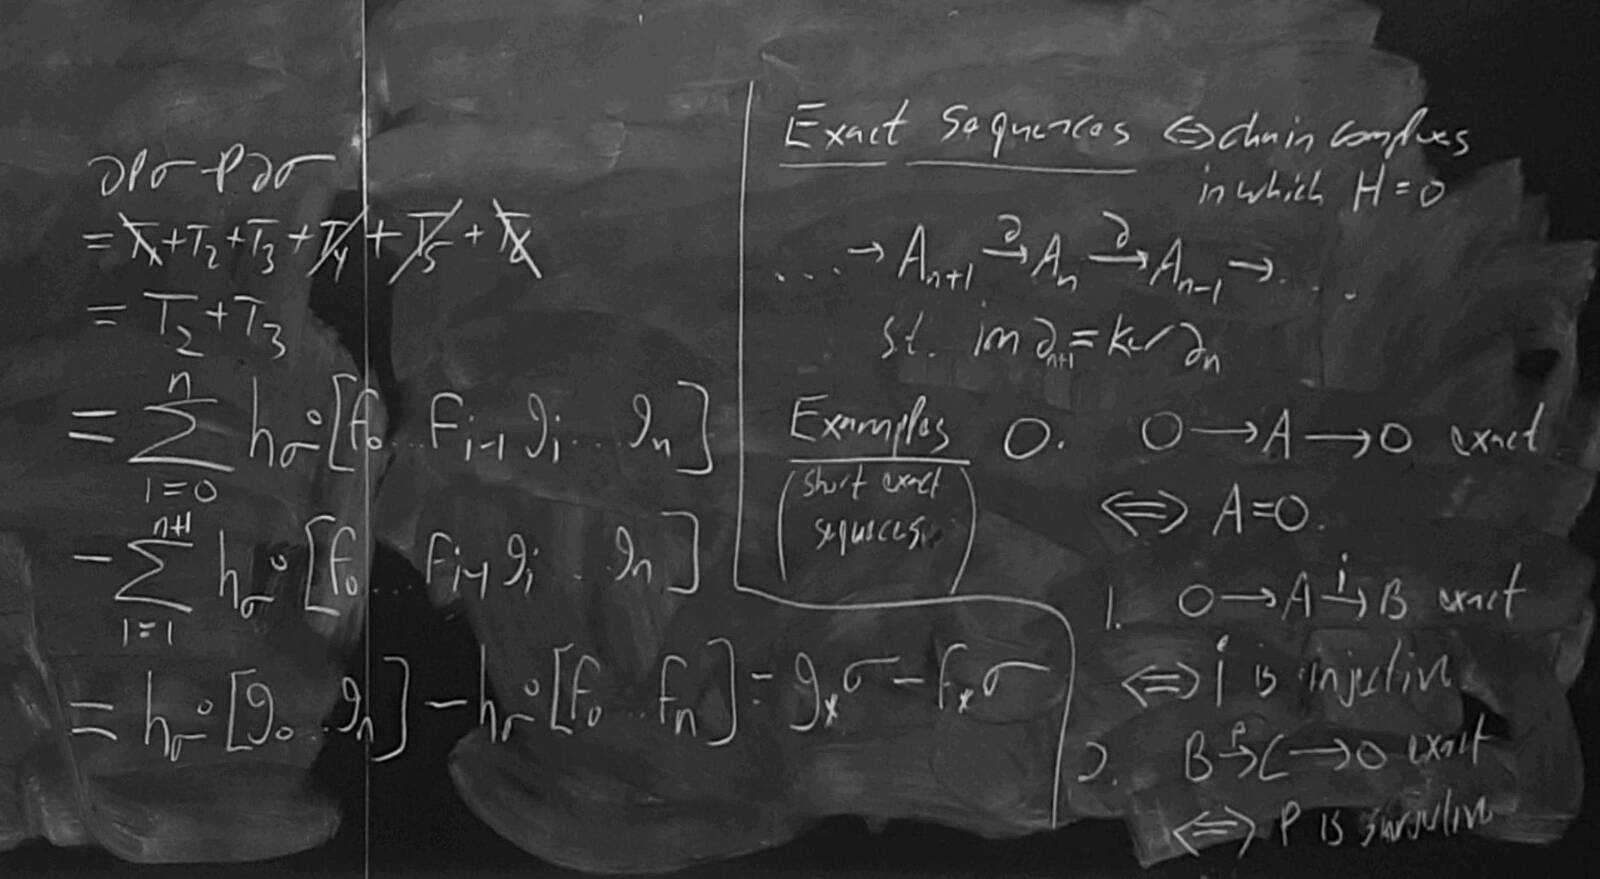 ∂Pσ - P∂σ
= T₁ + T₂ + T₃ + T₄ + T₅ + T₆
= T₂ + T₃
= ∑_{i=0}^{n} h_σ∘[f₀...f_{i-1} g_i...g_n]
- ∑_{i=1}^{n+1} h_σ∘[f₀...f_{i-1} g_i...g_n]
= h_σ∘[g₀...g_n] - h_σ∘[f₀...f_n] = g_*σ - f_*σ
Exact Sequences ⇔ chain complexes
in which H=0
...→ A_{n+1} →^∂ A_n →^∂ A_{n-1} → ...
s.t. im ∂_{n+1} = ker ∂_n
Examples
(short exact
sequences)
0. 0 → A → 0 exact
⇔ A=0.
1. 0 → A →^i B exact
⇔ i is injective
2. B →^p C → 0 exact
⇔ P is surjective